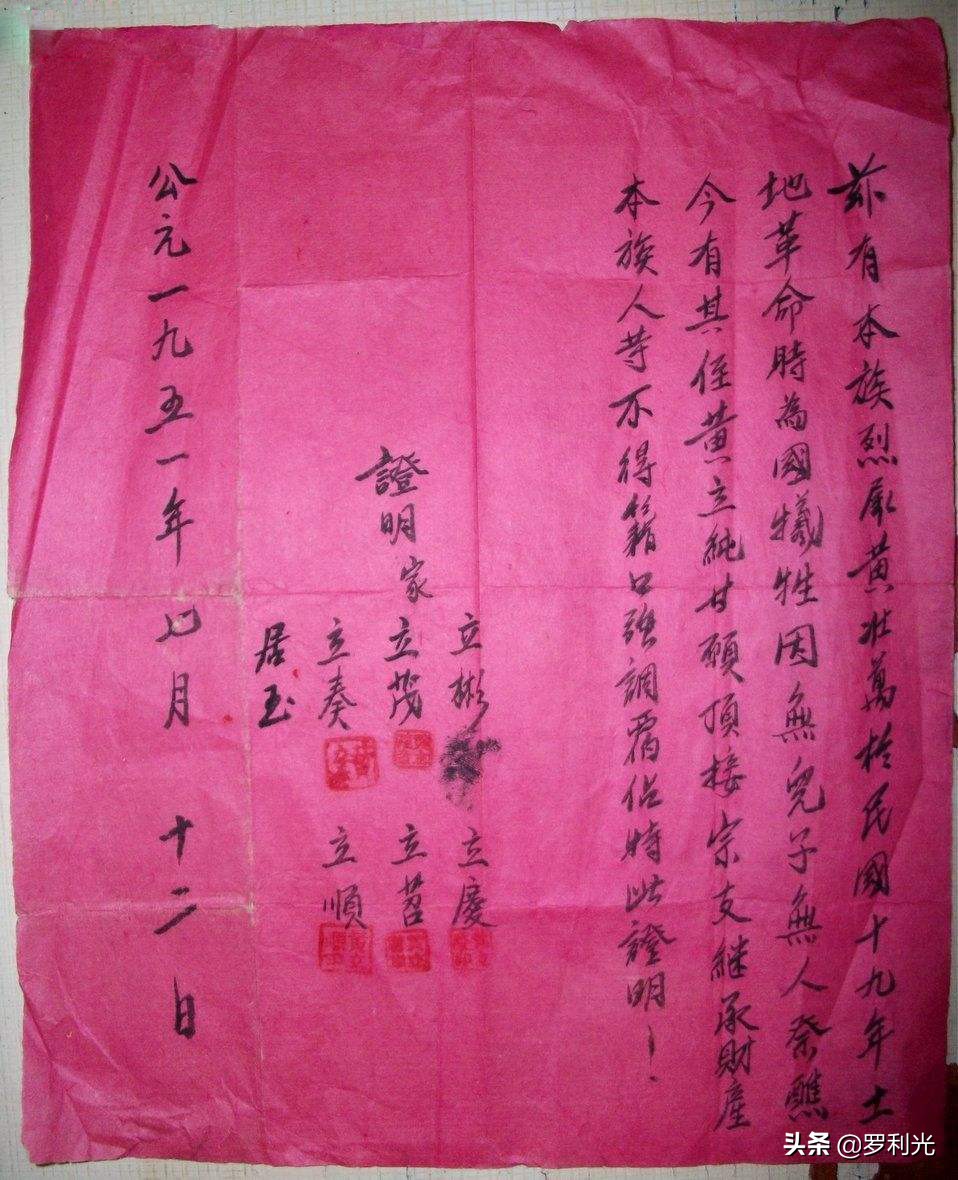 茲有本族烈屬黃壯萬於民國十九年土
地革命時為國犧牲因無兒子無人祭醮
今有其侄黃立純甘願頂接宗支繼承財產
本族人等不得籍口強調霸佔特此證明！
證明家
立彬 立慶
立茂 立苕
立奏 立順
居玉
公元一九五一年七月十二日
头条 @罗利光